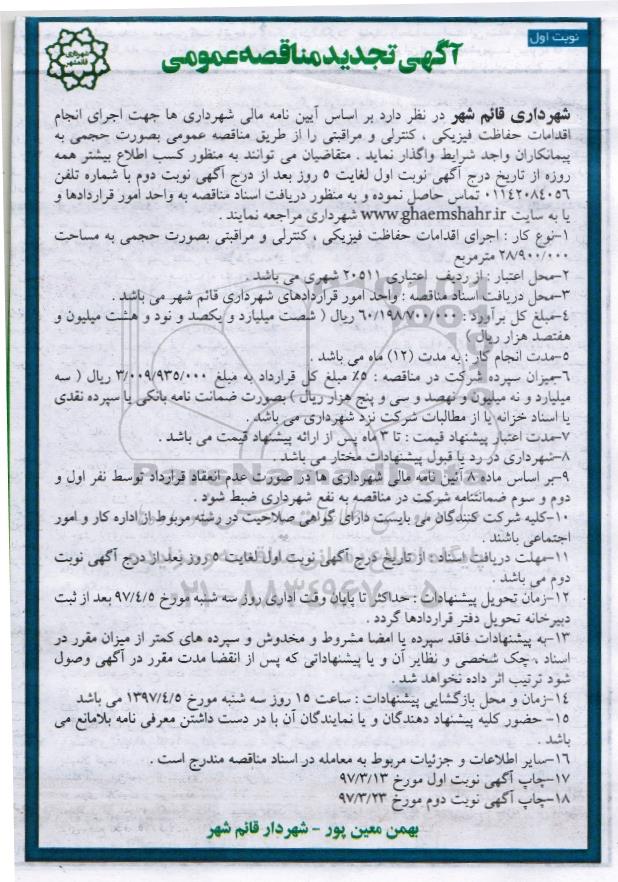 نوبت اول
آگهی تجدید مناقصه عمومی
شهرداری قائم شهر در نظر دارد بر اساس آیین نامه مالی شهرداری ها جهت اجرای انجام
اقدامات حفاظت فیزیکی ، کنترلی و مراقبتی را از طریق مناقصه عمومی بصورت حجمی به
پیمانکاران واجد شرایط واگذار نماید . متقاضیان می توانند به منظور کسب اطلاع بیشتر همه
روزه از تاریخ درج آگهی نوبت اول لغایت ۵ روز بعد از درج آگهی نوبت دوم با شماره تلفن
۰۱۱۴۲۰۸۴۰۵۶ تماس حاصل نموده و به منظور دریافت اسناد مناقصه به واحد امور قراردادها و
یا به سایت www.ghaemshahr.ir شهرداری مراجعه نمایند .
۱-نوع کار : اجرای اقدامات حفاظت فیزیکی ، کنترلی و مراقبتی بصورت حجمی به مساحت
۲۸/۹۰۰/۰۰۰ مترمربع
۲-محل اعتبار : از ردیف اعتباری ۲۰۵۱۱ شهری می باشد .
۳-محل دریافت اسناد مناقصه : واحد امور قراردادهای شهرداری قائم شهر می باشد .
۴-مبلغ کل برآورد : ۶۰/۱۹۸/۷۰۰/۰۰۰ ریال ( شصت میلیارد و یکصد و نود و هشت میلیون و
هفتصد هزار ریال )
۵-مدت انجام کار : به مدت (۱۲) ماه می باشد .
۶-میزان سپرده شرکت در مناقصه : ۵٪ مبلغ کل قرارداد به مبلغ ۳/۰۰۹/۹۳۵/۰۰۰ ریال ( سه
میلیارد و نه میلیون و نهصد و سی و پنج هزار ریال ) بصورت ضمانت نامه بانکی یا سپرده نقدی
یا اسناد خزانه یا از مطالبات شرکت نزد شهرداری می باشد .
۷-مدت اعتبار پیشنهاد قیمت : تا ۳ ماه پس از ارائه پیشنهاد قیمت می باشد .
۸-شهرداری در رد یا قبول پیشنهادات مختار می باشد .
۹-بر اساس ماده ۸ آئین نامه مالی شهرداری ها در صورت عدم انعقاد قرارداد توسط نفر اول و
دوم و سوم ضمانتنامه شرکت در مناقصه به نفع شهرداری ضبط شود .
۱۰-کلیه شرکت کنندگان می بایست دارای گواهی صلاحیت در رشته مربوط از اداره کار و امور
اجتماعی باشند .
۱۱-مهلت دریافت اسناد : از تاریخ درج آگهی نوبت اول لغایت ۵ روز بعد از درج آگهی نوبت
دوم می باشد .
۱۲-زمان تحویل پیشنهادات : حداکثر تا پایان وقت اداری روز سه شنبه مورخ ۹۷/۴/۵ بعد از ثبت
دبیرخانه تحویل دفتر قراردادها گردد .
۱۳-به پیشنهادات فاقد سپرده یا امضا مشروط و مخدوش و سپرده های کمتر از میزان مقرر در
اسناد ، چک شخصی و نظایر آن و یا پیشنهاداتی که پس از انقضا مدت مقرر در آگهی وصول
شود ترتیب اثر داده نخواهد شد .
۱۴-زمان و محل بازگشایی پیشنهادات : ساعت ۱۵ روز سه شنبه مورخ ۱۳۹۷/۴/۵ می باشد
۱۵- حضور کلیه پیشنهاد دهندگان و یا نمایندگان آن با در دست داشتن معرفی نامه بلامانع می
باشد .
۱۶-سایر اطلاعات و جزئیات مربوط به معامله در اسناد مناقصه مندرج است .
۱۷-چاپ آگهی نوبت اول مورخ ۹۷/۳/۱۳
۱۸-چاپ آگهی نوبت دوم مورخ ۹۷/۳/۲۳
بهمن معین پور - شهردار قائم شهر